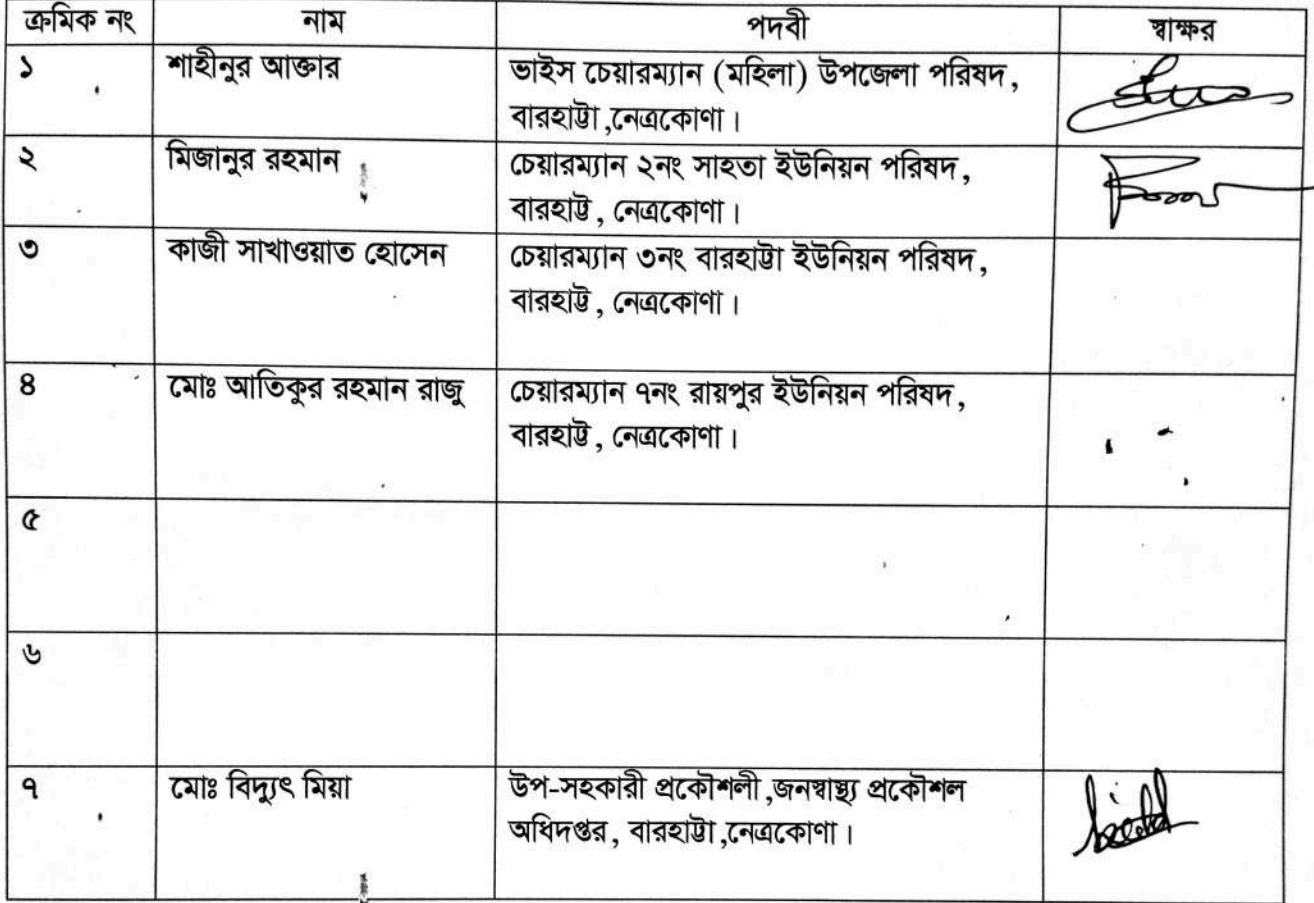 ক্রমিক নং নাম পদবী স্বাক্ষর
১ শাহীনুর আক্তার ভাইস চেয়ারম্যান (মহিলা) উপজেলা পরিষদ,
বারহাট্টা,নেত্রকোণা।
২ মিজানুর রহমান চেয়ারম্যান ২নং সাহতা ইউনিয়ন পরিষদ,
বারহাট্ট, নেত্রকোণা।
৩ কাজী সাখাওয়াত হোসেন চেয়ারম্যান ৩নং বারহাট্টা ইউনিয়ন পরিষদ,
বারহাট্ট, নেত্রকোণা।
৪ মোঃ আতিকুর রহমান রাজু চেয়ারম্যান ৭নং রায়পুর ইউনিয়ন পরিষদ,
বারহাট্ট, নেত্রকোণা।
৫
৬
৭ মোঃ বিদ্যুৎ মিয়া উপ-সহকারী প্রকৌশলী,জনস্বাস্থ্য প্রকৌশল
অধিদপ্তর, বারহাট্টা,নেত্রকোণা।